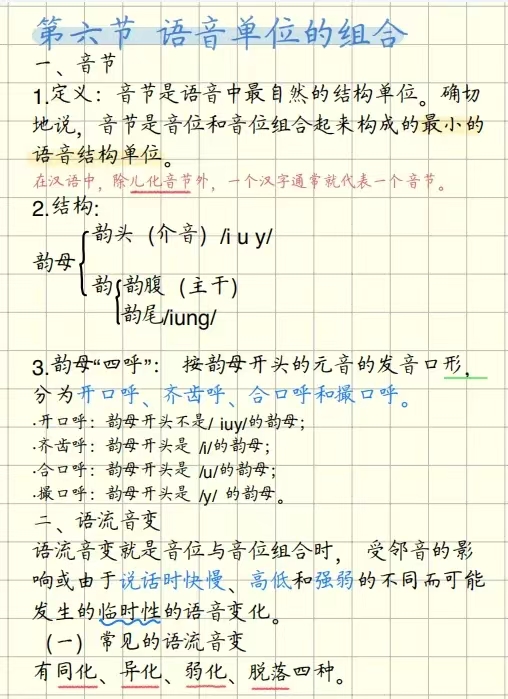 第六节 语音单位的组合
一、音节
1.定义：音节是语音中最自然的结构单位。确切
地说，音节是音位和音位组合起来构成的最小的
语音结构单位。
在汉语中，除儿化音节外，一个汉字通常就代表一个音节。
2.结构:
韵头（介音）/i u y/
韵母
韵 韵腹（主干）
韵尾/iung/
3.韵母“四呼”： 按韵母开头的元音的发音口形，
分为开口呼、齐齿呼、合口呼和撮口呼。
·开口呼：韵母开头不是/ iuy/的韵母；
·齐齿呼：韵母开头是 /i/的韵母；
·合口呼：韵母开头是 /u/的韵母；
·撮口呼：韵母开头是 /y/ 的韵母。
二、语流音变
语流音变就是音位与音位组合时， 受邻音的影
响或由于说话时快慢、高低和强弱的不同而可能
发生的临时性的语音变化。
（一）常见的语流音变
有同化、异化、弱化、脱落四种。